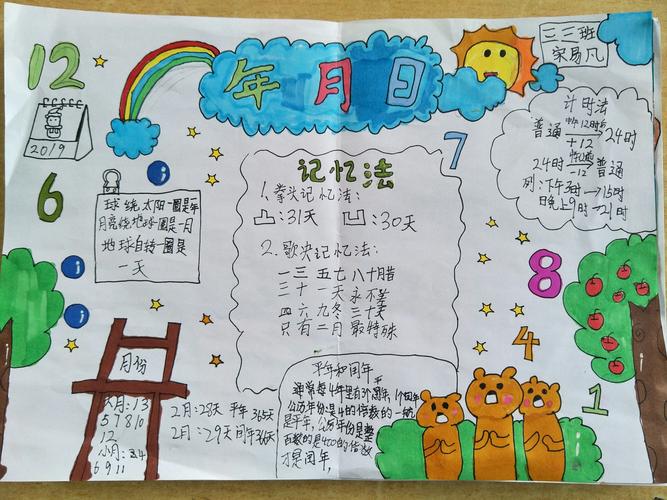 年月日
三三班
宋易凡
12
2019
6
7
8
4
1
球绕太阳一圈是一年
月亮绕地球一圈是一月
地球自转一圈是
一天
记忆法
1.拳头记忆法:
凸:31天 凹:30天
2.歌决记忆法:
一三五七八十腊
三十一天永不差
四六九冬三十天
只有二月最特殊
计时法
普通 +12 24时
24时 -12 普通
例:下午3时→15时
晚上9时→21时
月份
大月:13
57810
12
小月:
6911
2月:28天 平年365天
2月:29天
平年和闰年
通常每4年里有3个平年,1个闰年
公历年份是4的倍数的一般
是
百数的是400的倍数
才是闰年,